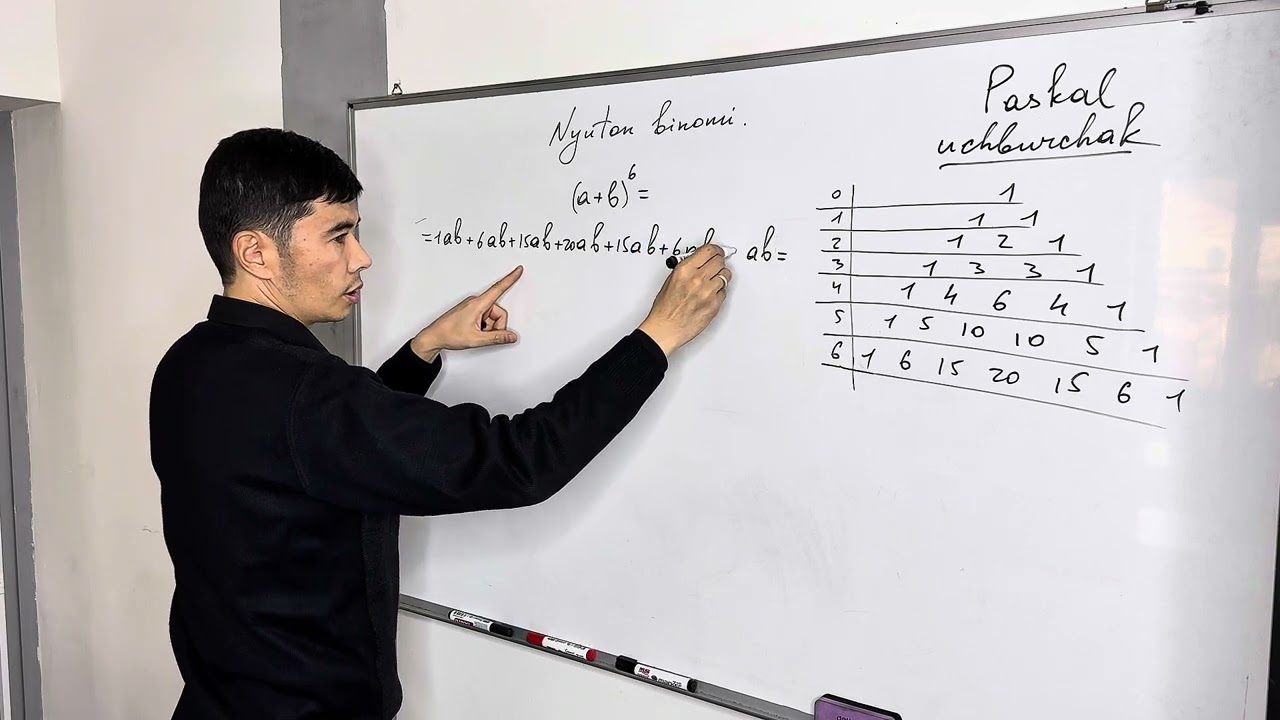 Nyuton binomi.
(a+b)⁶=
=1ab+6ab+15ab+20ab+15ab+6ab ab=
Paskal
uchburchak
0 1
1 1 1
2 1 2 1
3 1 3 3 1
4 1 4 6 4 1
5 1 5 10 10 5 1
6 1 6 15 20 15 6 1